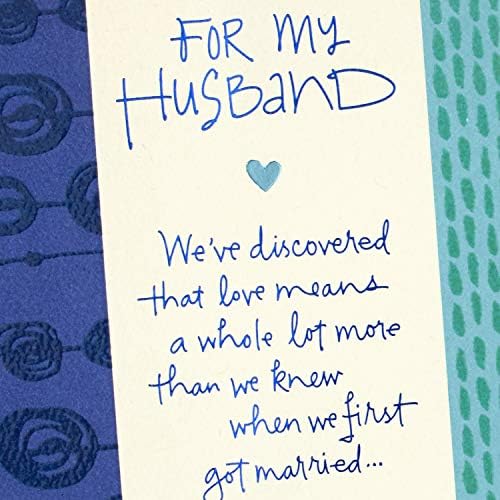 FOR MY
HUSBAND
We've discovered
that love means
a whole lot more
than we knew
when we first
got married...